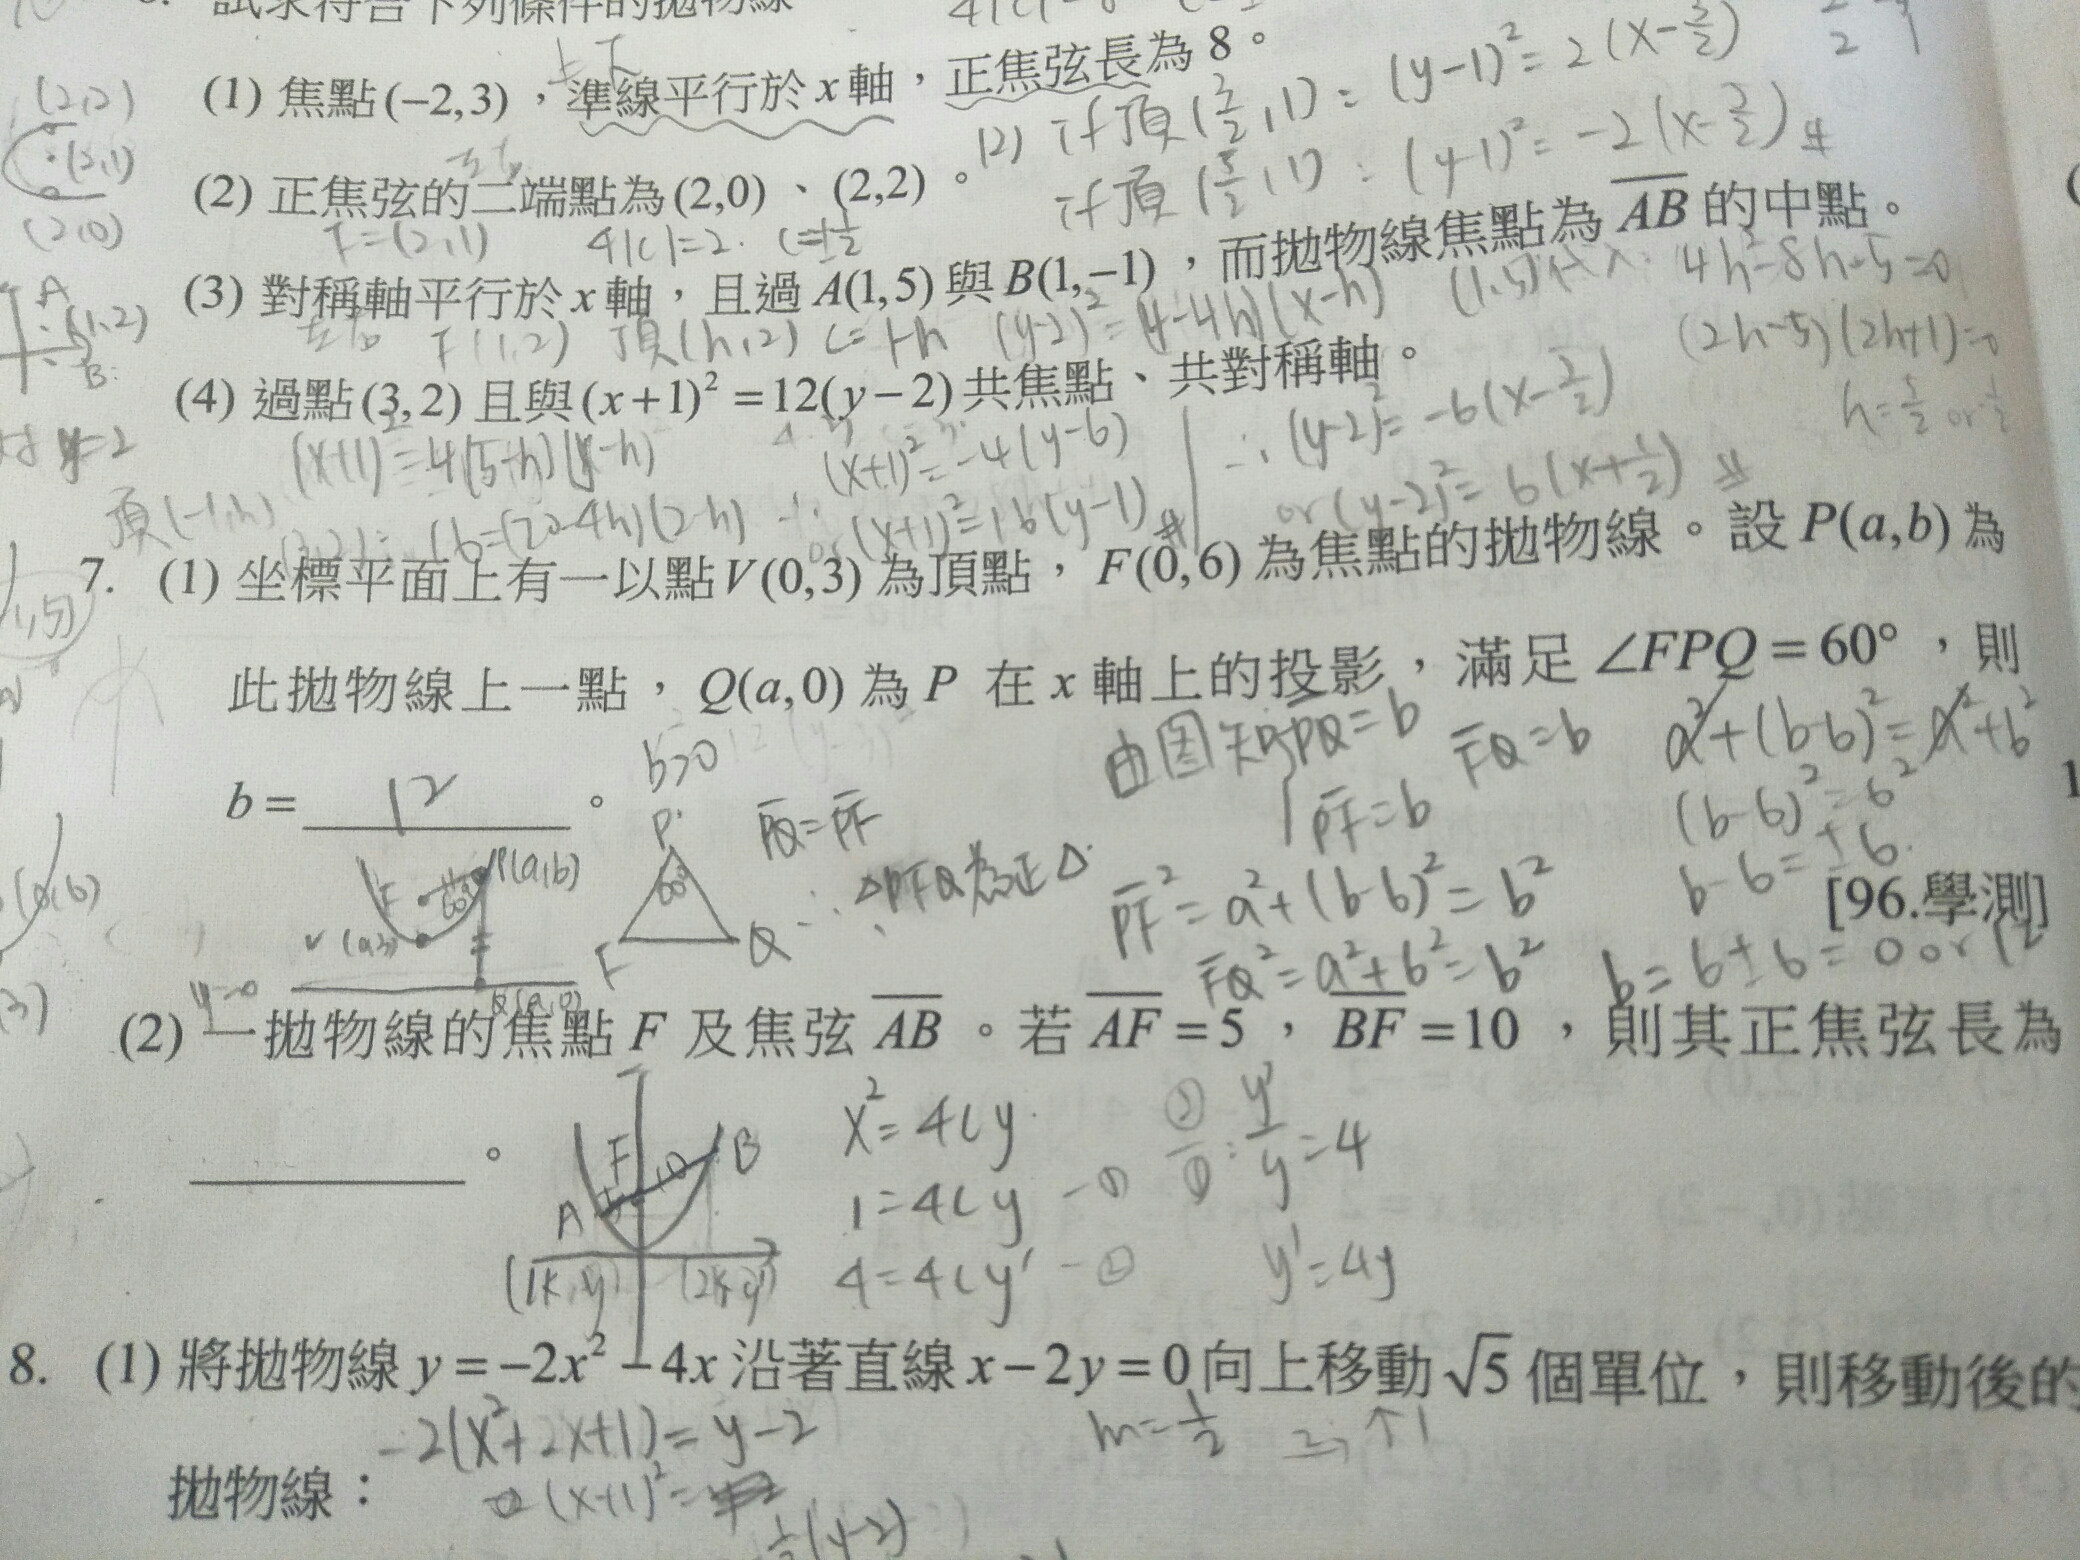 試求符合下列條件的拋物線
(1) 焦點(−2,3)，準線平行於 x 軸，正焦弦長為 8。
上下
(2) if 頂(3/2,1) : (y−1)²=2(x−3/2)
(2,2)
(2,1)
(2,0)
(2) 正焦弦的二端點為(2,0)、(2,2)。
左右
if 頂(5/2,1) : (y−1)²=−2(x−
F=(2,1) 4|c|=2. c=±1/2
(3) 對稱軸平行於 x 軸，且過 A(1,5) 與 B(1,−1)，而拋物線焦點為 AB 的中點。
左右 F(1,2) 頂(h,2) c=1−h (y−2)²=(4−4h)(x−h) 4h²−8h−5=0
A (1,2) B
(2h−5)(2h+1)=0
(4) 過點(3,2) 且與(x+1)²=12(y−2)共焦點、共對稱軸。
(x+1)²=4(5−h)(y−h) (x+1)²=−4(y−6) ∴(y−2)²=−6(x−
頂(−1,h) 16=(20−4h)(2−h) ∴ or (x+1)²=16(y−1) or (y−2)²=6(x+1/2)
7. (1) 坐標平面上有一以點V(0,3) 為頂點，F(0,6) 為焦點的拋物線。設 P(a,b) 為
此拋物線上一點，Q(a,0) 為 P 在 x 軸上的投影，滿足 ∠FPQ = 60°，則
b>0 由图知 PQ=b FQ=b a²+(b−6)²=a²+6²
b = 12 。
PQ=PF PF=b (b−6)²=6²
b−6=±6
P(a,b) F 60° V
P 60° F Q ∴ △PFQ為正△ PF²=a²+(b−6)²=b²
[96.學測]
y=0 Q(a,0) FQ²=a²+6²=b² b=6±6=0 or 12
(2) 一拋物線的焦點 F 及焦弦 AB。若 AF = 5，BF = 10，則其正焦弦長為
。
F 10 B A 5
x²=4cy ②/① : y'/y=4
1=4cy −①
(1k,y) (2k,y') 4=4cy' −② y'=4y
8. (1) 將拋物線 y = −2x² − 4x 沿著直線 x − 2y = 0 向上移動 √5 個單位，則移動後的
−2(x²+2x+1)=y−2 m=1/2 ↑1
拋物線：
(x+1)²=
(y−2)